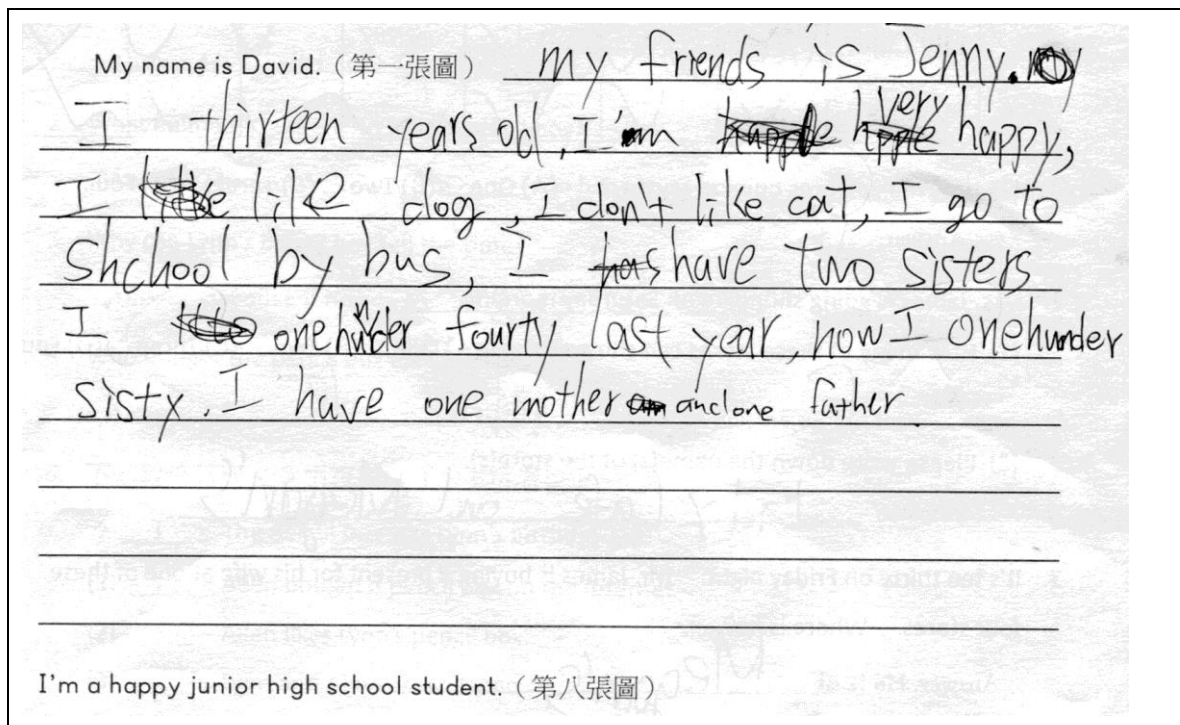 My name is David.（第一張圖） my friends is Jenny.
I thirteen years old, I'm very happy,
I like dog, I don't like cat, I go to
Shchool by bus, I have two sisters
I onehunder fourty last year, now I onehunder
sisty. I have one mother and one father
I'm a happy junior high school student.（第八張圖）